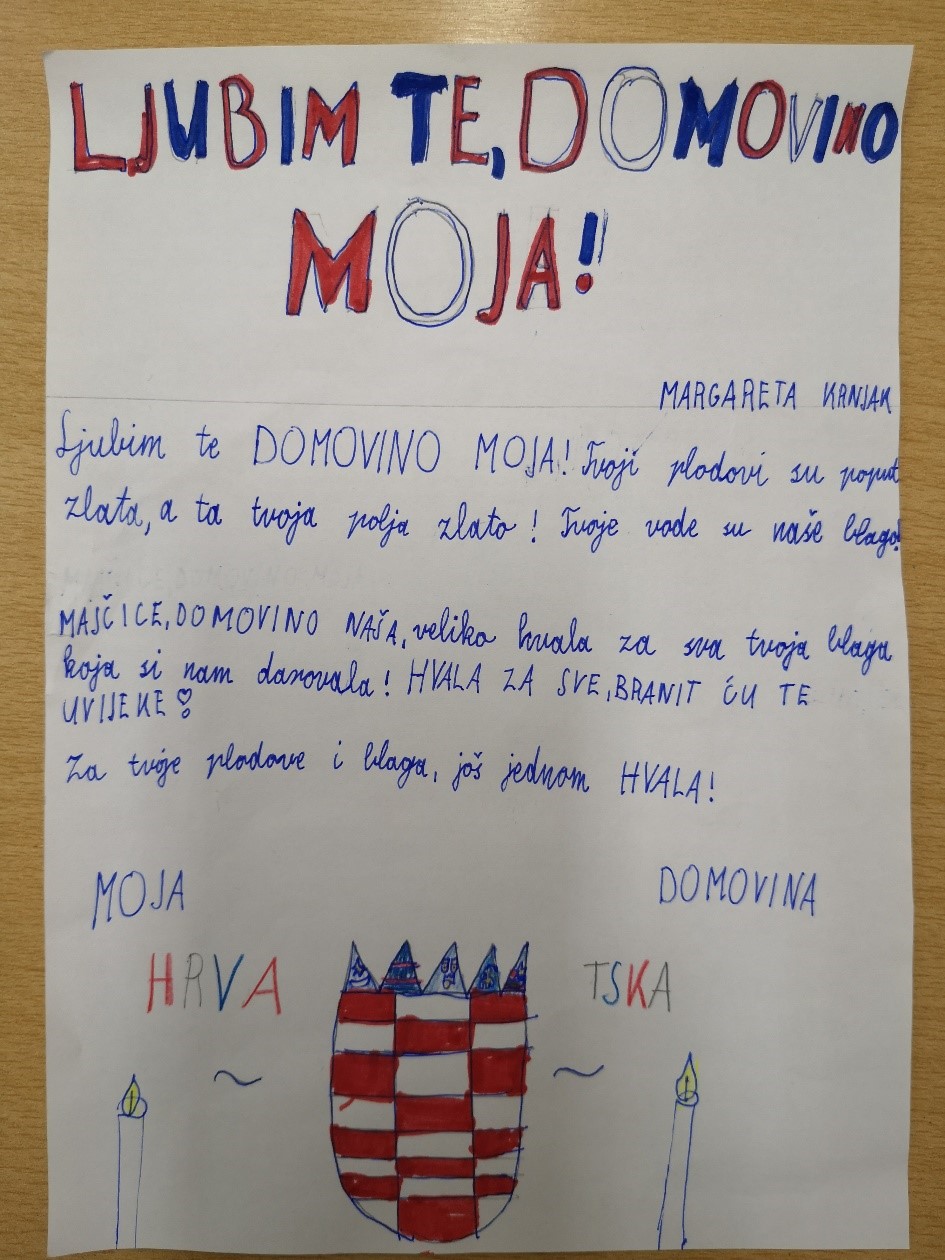 LJUBIM TE, DOMOVINO
MOJA!
MARGARETA KRNJAK
Ljubim te DOMOVINO MOJA! Tvoji plodovi su poput
zlata, a ta tvoja polja zlato! Tvoje vode su naše blago!
MAJČICE, DOMOVINO NAŠA, veliko hvala za sva tvoja blaga
koja si nam darovala! HVALA ZA SVE, BRANIT ĆU TE
UVIJEKE
Za tvoje plodove i blaga, još jednom HVALA!
MOJA DOMOVINA
HRVA TSKA